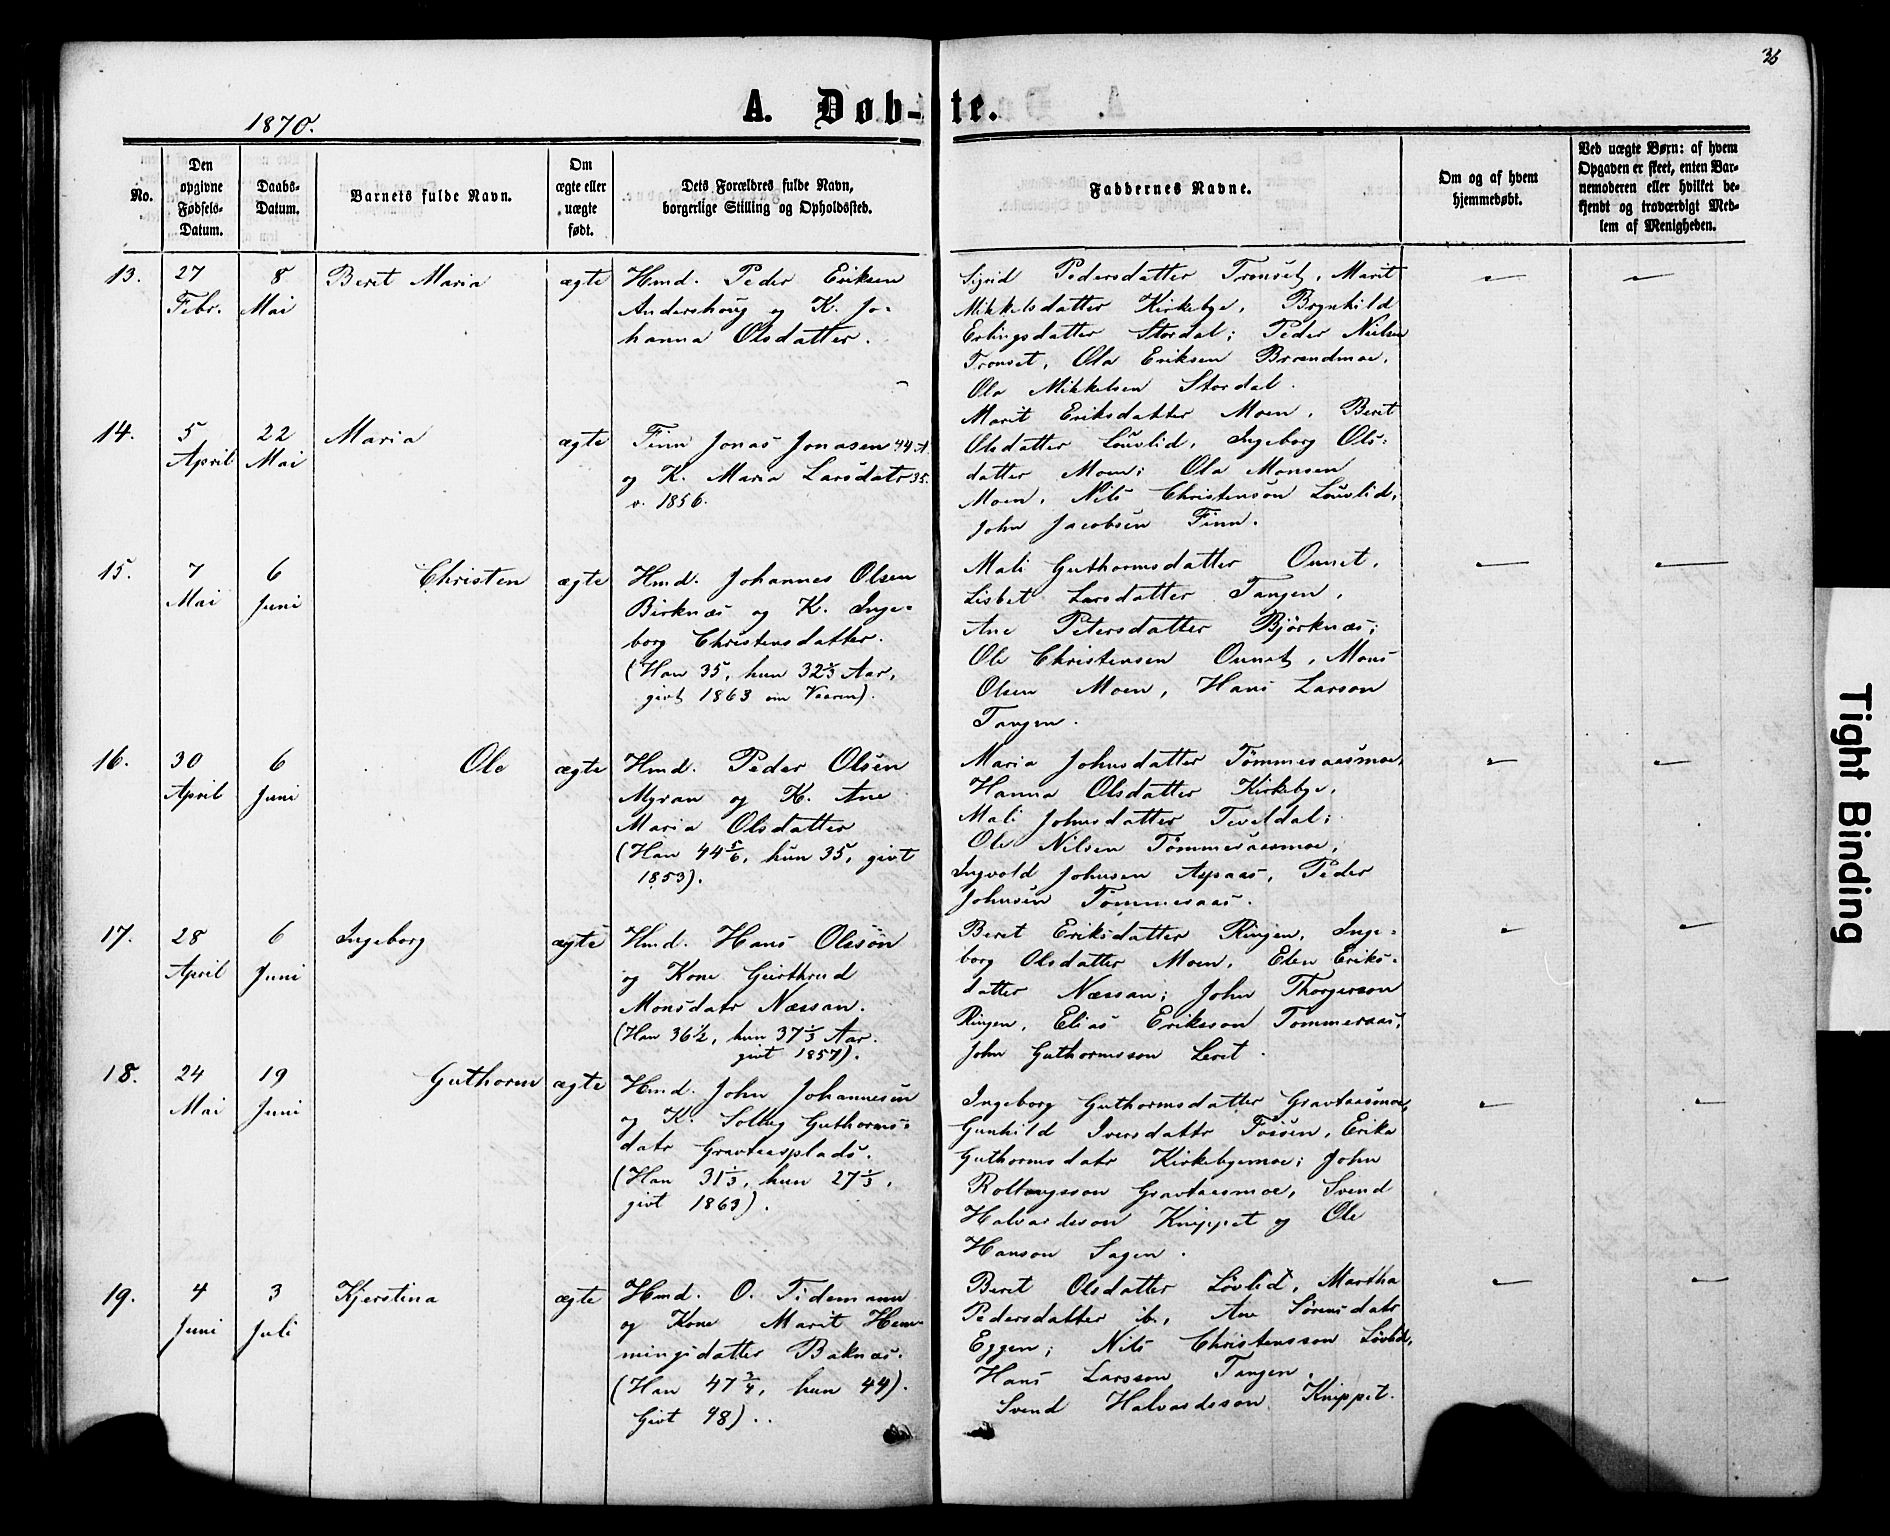 36
A. Døb-te.
1870.
No.
Den opgivne Fødsels-Datum.
Daabs-Datum.
Barnets fulde Navn.
Om ægte eller uægte født.
Dets Forældres fulde Navn, borgerlige Stilling og Opholdssted.
Faddernes Navne.
Om og af hvem hjemmedøbt.
Ved uægte Børn: af hvem Opgaven er skeet, enten Barnemoderen eller hvilket bekjendt og troværdigt Medlem af Menigheden.
13.
27 Febr.
8 Mai
Beret Maria
ægte
Hmd. Peder Eriksen
Andershoug og K. Jo-
hanna Olsdatter.
Sigrid Pedersdatter Tronset, Marit
Mikkelsdatter Kirkebye, Brynhild
Erlingsdatter Stordal; Peder Nielsen
Tronset, Ola Eriksen Brændmoe,
Ola Mikkelsen Stordal.
14.
5 April
22 Mai
Maria
ægte
Finn Jonas Jonasen 44 A
og K. Maria Larsdatr 35.
v. 1856.
Marit Eriksdatter Moen, Beret
Olsdatter Louvlid, Ingeborg Ols-
datter Moen; Ola Monsen
Moen, Nils Christensøn Louvlid,
John Jacobsen Finn.
15.
7 Mai
6 Juni
Christen
ægte
Hmd. Johannes Olsen
Birknæs og K. Inge-
borg Christensdatter.
(Han 35, hun 32 2/3 Aar,
givt 1863 om Vaaren).
Mali Guthormsdatter Ounet,
Lisbet Larsdatter Tangen,
Ane Petersdatter Bjørknæs;
Ole Christensen Ounet, Mons
Olsen Moen, Hans Larson
Tangen.
16.
30 April
6 Juni
Ole
ægte
Hmd. Peder Olsen
Myran og K. Ane
Maria Olsdatter
(Han 44 5/6, hun 35, givt
1853).
Maria Johnsdatter Tømmeraasmoe,
Hanna Olsdatter Kirkebye,
Mali Johnsdatter Teveldal;
Ole Nilsen Tømmeraasmoe,
Ingvold Johnsen Aspaas, Peder
Johnsen Tømmeraas.
17.
28 April
6 Juni
Ingeborg
ægte
Hmd. Hans Olssøn
og Kone Gurthrud
Monsdatr Næssan.
(Han 36 1/2, hun 37 1/3 Aar.
givt 1857).
Beret Eriksdatter Ringen, Inge-
borg Olsdatter Moen, Elen Eriks-
datter Næssan; John Thorgerson
Ringen, Elias Eriksson Tømmeraas,
John Guthormsson Leret.
18.
24 Mai
19 Juni
Guthorm
ægte
Hmd. John Johannesen
og K. Solveg Guthorms-
datr Gravaasplads.
(Han 31 1/3, hun 27 1/3,
givt 1863).
Ingeborg Guthormsdatter Gravaasmoe,
Gunhild Iversdatter Fossen, Erika
Guthormsdatr Kirkebyemoe; John
Gravaasmoe, Svend
Halvardsson Knippet og Ole
Hanson Sagen.
19.
4 Juni
3 Juli
Kjerstina
ægte
Hmd. O. Tidemann
og Kone Marit Hem-
mingsdatter Baknæs.
(Han 47 3/4, hun 44).
Givt 48).
Beret Olsdatter Løvlid, Martha
Pedersdatter ib., Ane Sørensdatr
Eggen; Nils Christensson Løvlid,
Hans Larsson Tangen,
Svend Halvardsson Knippet.
Tight Binding